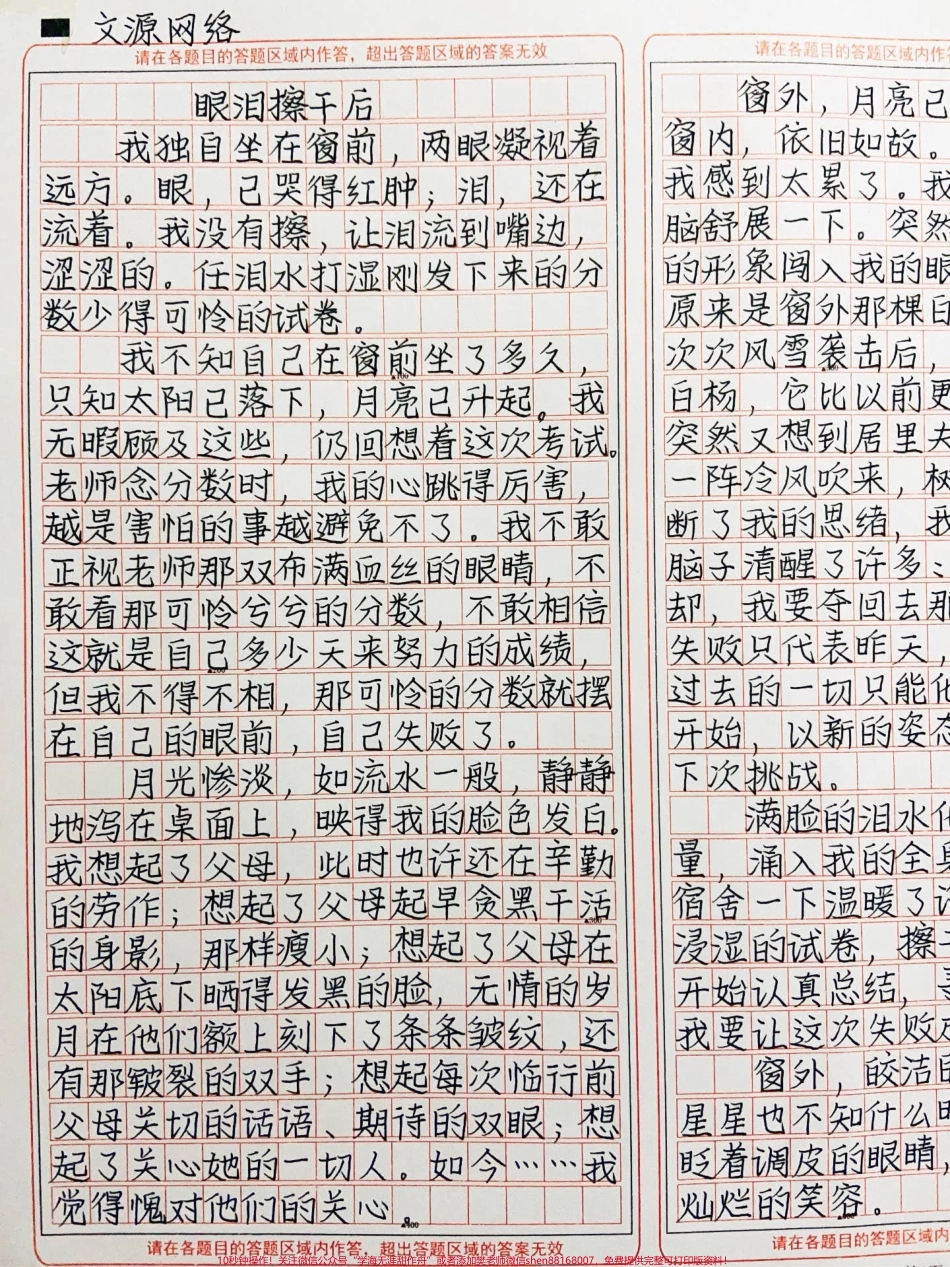 文源网络
请在各题目的答题区域内作答，超出答题区域的答案无效
眼泪擦干后
我独自坐在窗前，两眼凝视着
远方。眼，已哭得红肿；泪，还在
流着。我没有擦，让泪流到嘴边，
涩涩的。任泪水打湿刚发下来的分
数少得可怜的试卷。
我不知自己在窗前坐了多久，
只知太阳已落下，月亮已升起。我
无暇顾及这些，仍回想着这次考试。
老师念分数时，我的心跳得厉害，
越是害怕的事越避免不了。我不敢
正视老师那双布满血丝的眼睛，不
敢看那可怜兮兮的分数，不敢相信
这就是自己多少天来努力的成绩，
但我不得不相，那可怜的分数就摆
在自己的眼前，自己失败了。
月光惨淡，如流水一般，静静
地泻在桌面上，映得我的脸色发白。
我想起了父母，此时也许还在辛勤
的劳作；想起了父母起早贪黑干活
的身影，那样瘦小；想起了父母在
太阳底下晒得发黑的脸，无情的岁
月在他们额上刻下了条条皱纹，还
有那皲裂的双手；想起每次临行前
父母关切的话语、期待的双眼；想
起了关心她的一切人。如今……我
觉得愧对他们的关心。
请在各题目的答题区域内作答，超出答题区域的答案无效
请在各题目的答题区域内作
窗外，月亮已
窗内，依旧如故。
我感到太累了。我
脑舒展一下。突然
的形象闯入我的眼
原来是窗外那棵白
次次风雪袭击后，
白杨，它比以前更
突然又想到居里夫
一阵冷风吹来，树
断了我的思绪，我
脑子清醒了许多：
却，我要夺回去那
失败只代表昨天，
过去的一切只能代
开始，以新的姿态
下次挑战。
满脸的泪水化
量，涌入我的全身
宿舍一下温暖了许
浸湿的试卷，擦干
开始认真总结，寻
我要让这次失败
窗外，皎洁的
星星也不知什么时
眨着调皮的眼睛，
灿烂的笑容。
请在各题目的答题区域内
10秒钟操作！关注微信公众号“学海无涯甜作舟”或者添加樊老师微信shen88168007，免费提供完整可打印版资料！